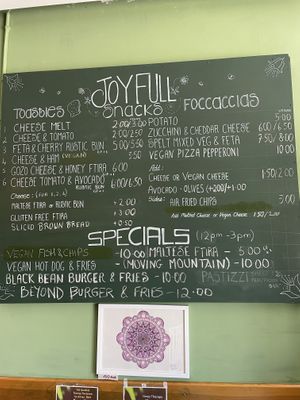 JOYFULL
Snacks
Toasties
1 CHEESE MELT 2.00/3.00
2 CHEESE & TOMATO 2.00/2.50
3 FETA & CHERRY RUSTIC BUN 5.00/5.50
4 CHEESE & HAM (VEGAN) 5.50
5 GOZO CHEESE & HONEY FTIRA 6.00
6 CHEESE TOMATO & AVOCADO 6.00/6.50
RUSTIC BUN
MALTESE FTIRA or RUSTIC BUN
GLUTEN FREE FTIRA +3.00
SLICED BROWN BREAD +0.50
FOCCACCIAS
POTATO 5.00
ZUCCHINI & CHEDDAR CHEESE 6.00/6.50
SPELT MIXED VEG & FETA 7.50/8.00
VEGAN PIZZA PEPPERONI 10.00
Add:
CHEESE OR VEGAN CHEESE 1.50/2.00
AVOCADO · OLIVES (+2.00)/+1.00
Sides:
AIR FRIED CHIPS 5.00
Add Melted Cheese or Vegan Cheese 1.50/2.00
SPECIALS (12pm-3pm)
VEGAN FISH & CHIPS -10.00
MALTESE FTIRA - 5.00
VEGAN HOT DOG & FRIES - (MOVING MOUNTAIN) - 10.00
BLACK BEAN BURGER & FRIES - 10.00
PASTIZZI
BEYOND BURGER & FRIES - 12.00